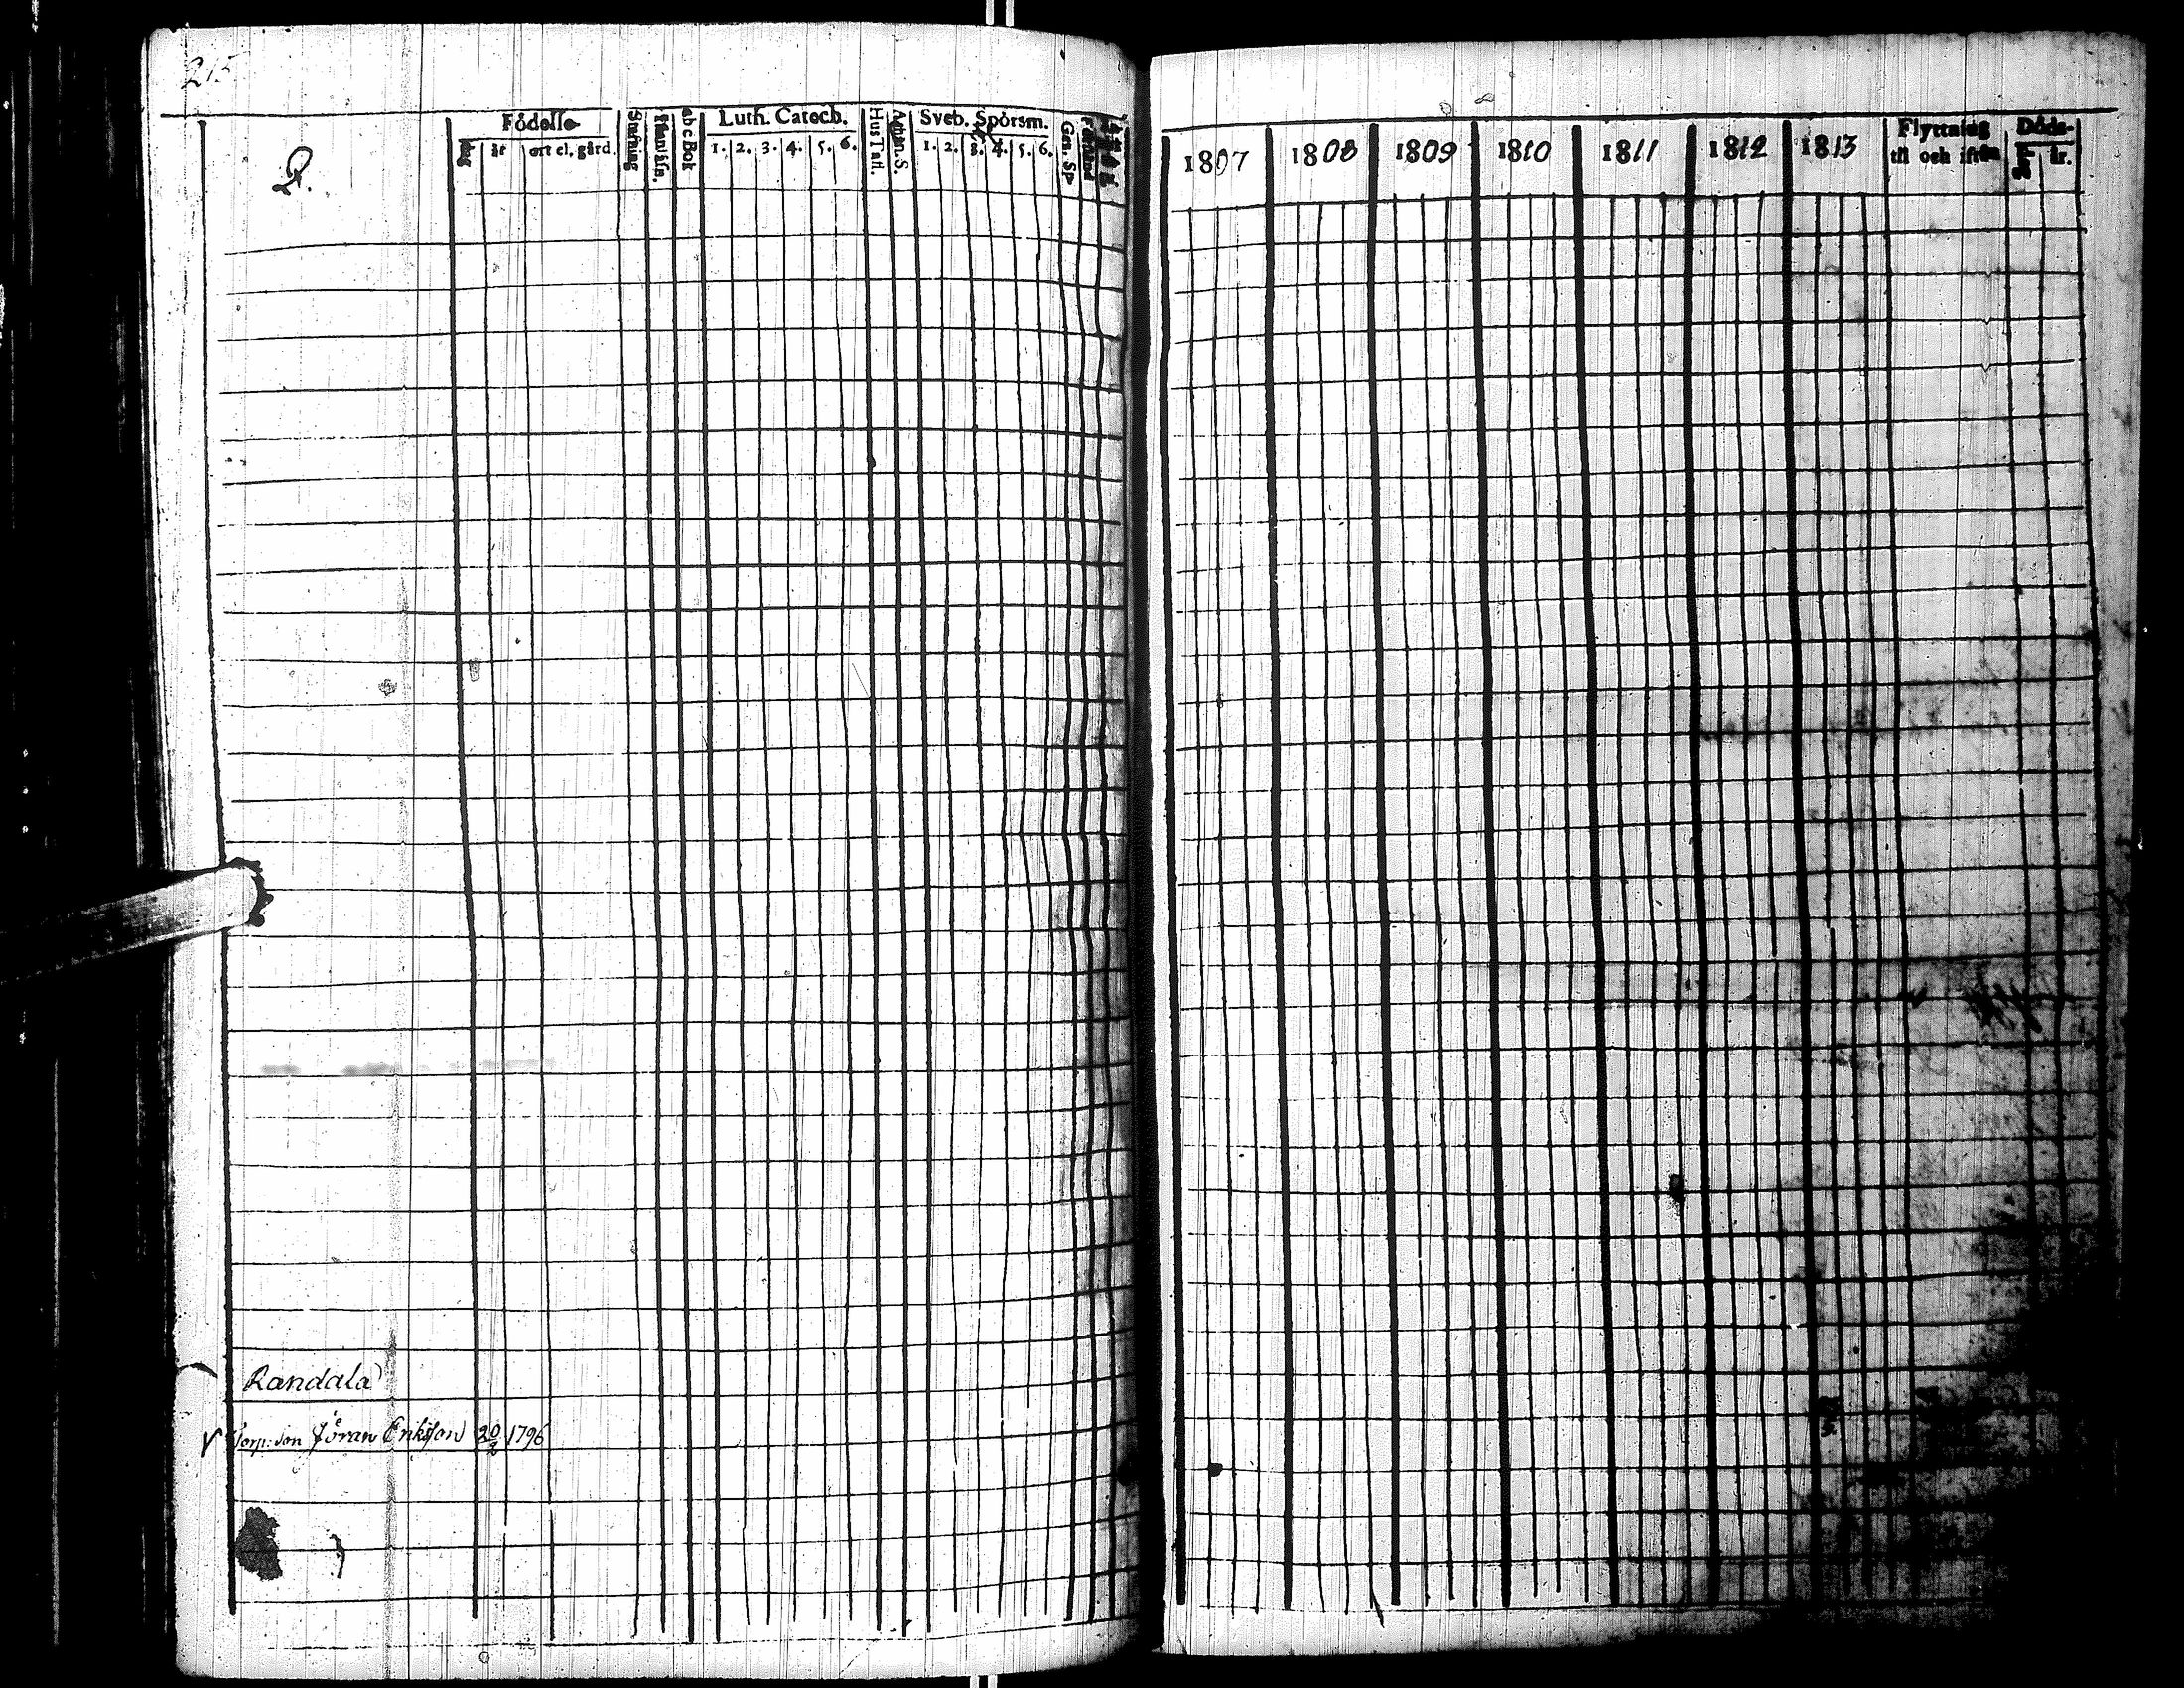 215
Q.
Födelse
dag år ort el. gård.
Stafning
abcBok
Luth. Catech.
1. 2. 3. 4. 5. 6.
Hus Tafl.
Athan. S.
Sveb. Spörsm.
1. 2. 3. 4. 5. 6.
Gen. Sp
1807 1808 1809 1810 1811 1812 1813
Flyttning
til och ifrån
Döds-
år.
Randala
Torp: son Jöran Eriksson 20/2 1796